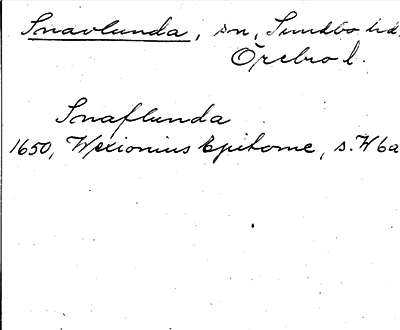 Snavlunda, sn, Sundbo hd.
Örebro l.
Snaflunda
1650, Wexionius Epitome, s. H 6a